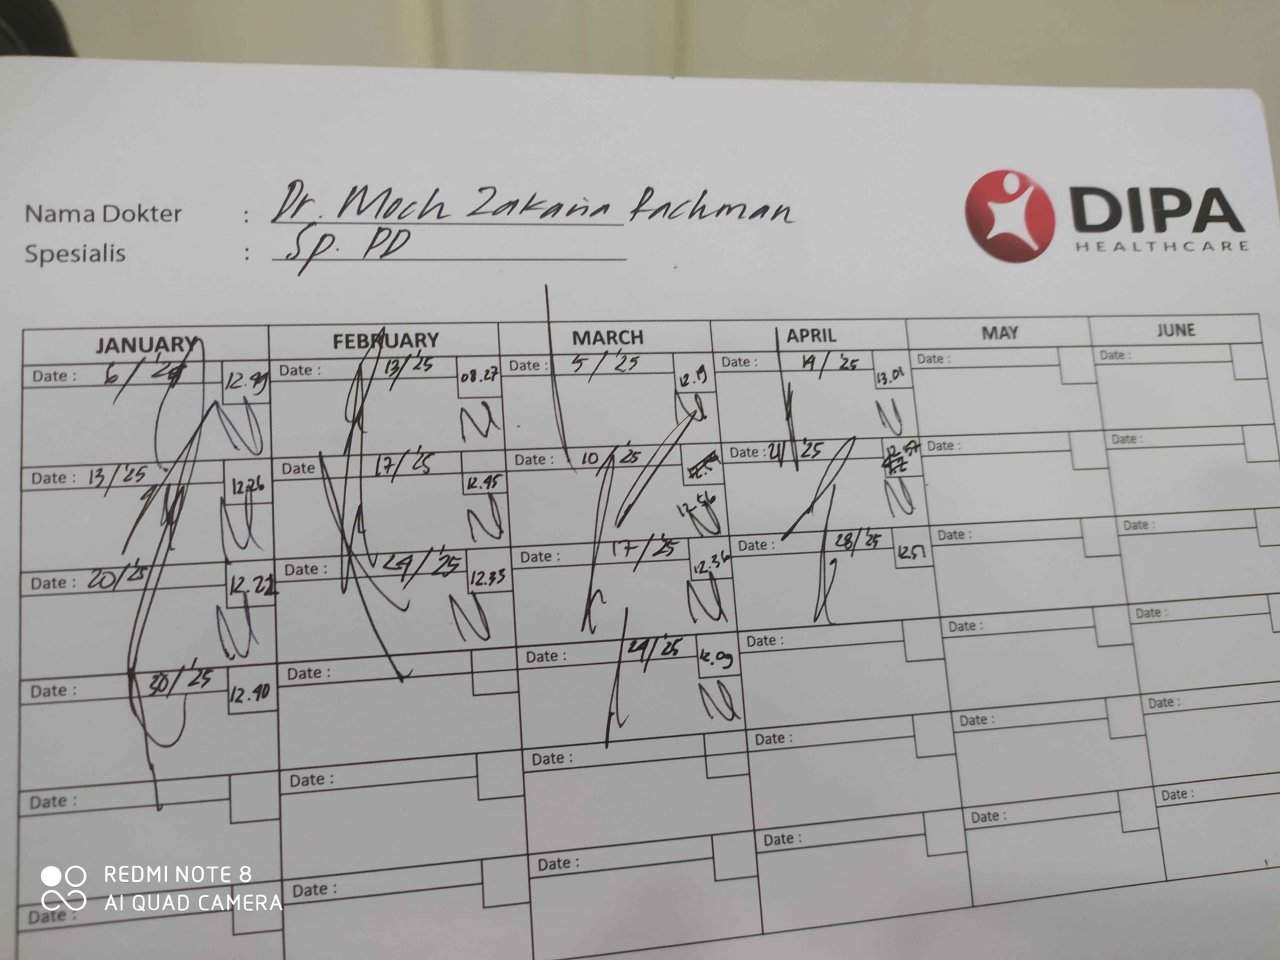 Nama Dokter : Dr. Moch Zakaria Rachman
Spesialis : Sp. PD
DIPA
HEALTHCARE
JANUARY FEBRUARY MARCH APRIL MAY JUNE
Date : 6/'25 12.49 Date : 13/'25 08.27 Date : 5/'25 12.19 Date : 14/'25 13.01 Date : Date :
Date : 13/'25 12.26 Date 17/'25 12.45 Date : 10/'25 12.56 Date : 21/'25 12.57 Date : Date :
Date : 20/'25 12.22 Date : 24/'25 12.33 Date : 17/'25 12.36 Date : 28/'25 12.51 Date : Date :
Date : 30/'25 12.40 Date : Date : 24/'25 12.09 Date : Date : Date :
Date : Date : Date : Date : Date : Date :
Date : Date : Date : Date : Date : Date :
REDMI NOTE 8
AI QUAD CAMERA